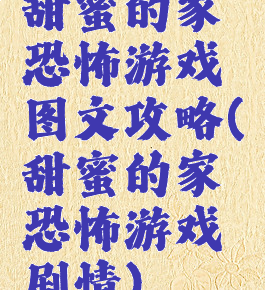 甜蜜的家
恐怖游戏
图文攻略(
甜蜜的家
恐怖游戏
剧情)